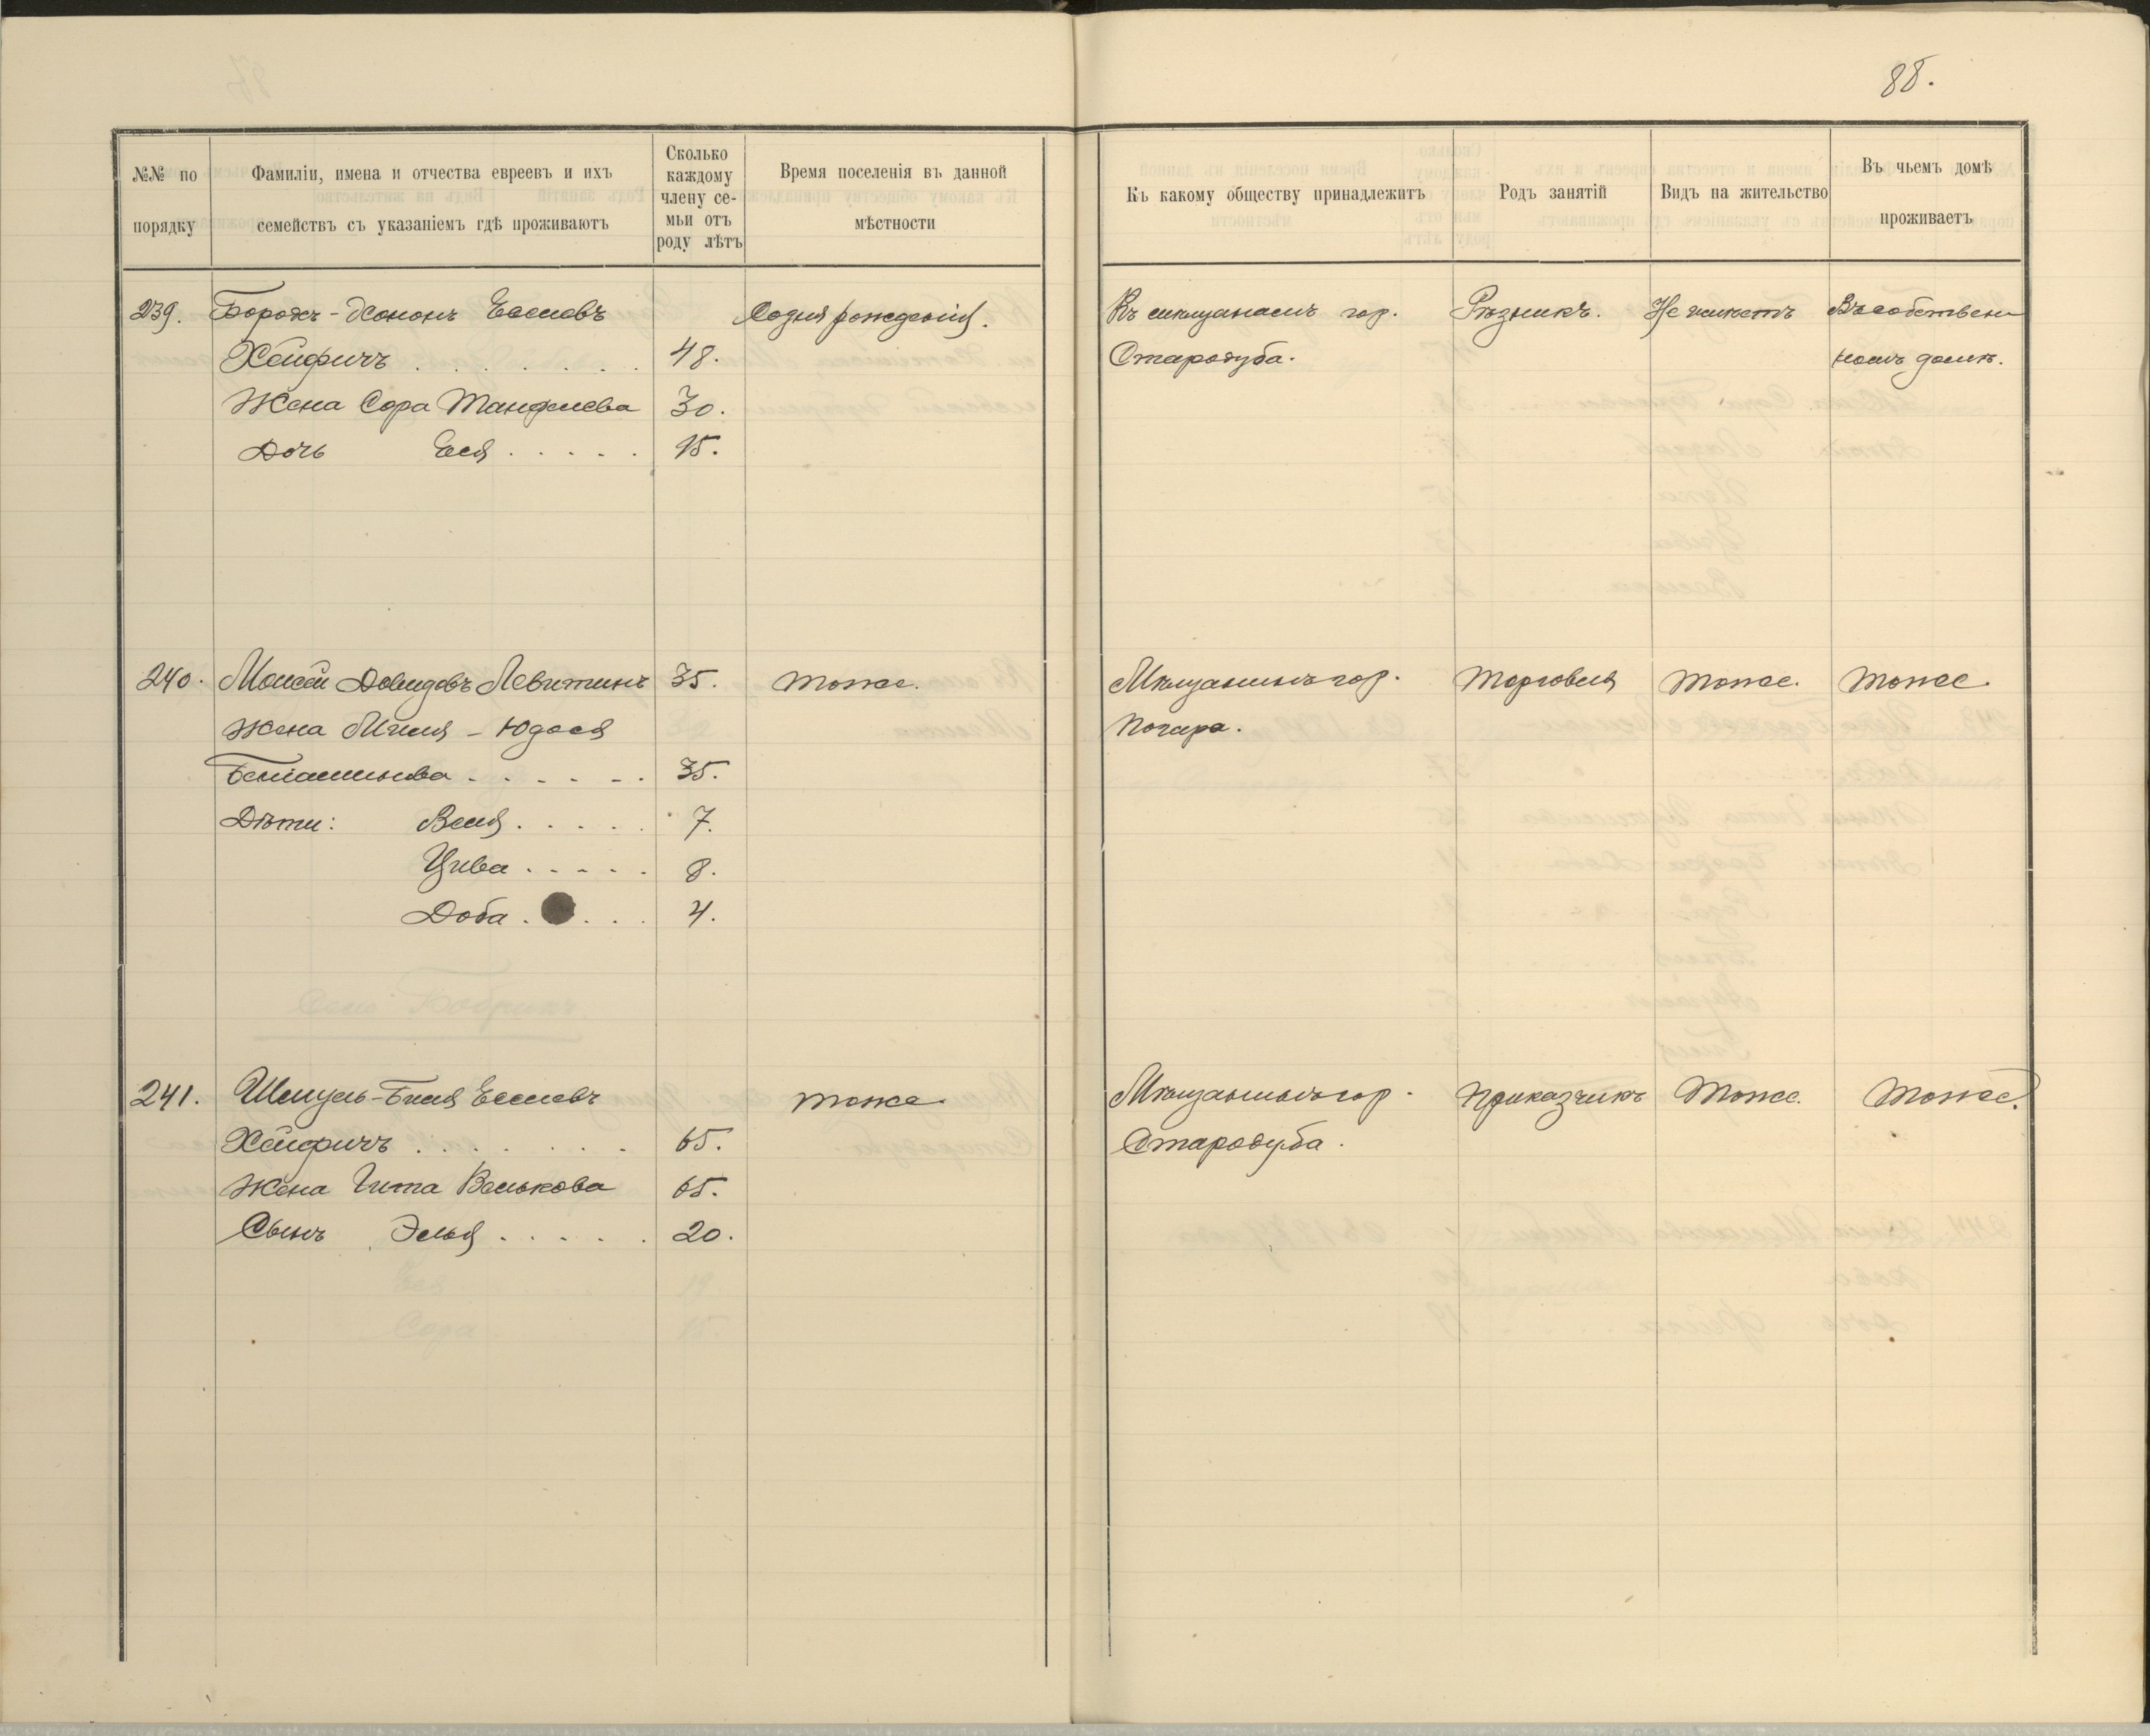 88.
№№ по порядку
Фамиліи, имена и отчества евреевъ и ихъ семействъ съ указаніемъ гдѣ проживаютъ
Сколько каждому члену семьи отъ роду лѣтъ
Время поселенія въ данной мѣстности
Къ какому обществу принадлежитъ
Родъ занятій
Видъ на жительство
Въ чьемъ домѣ проживаетъ
239. Борохъ-Хононъ Евсеевъ Со дня рожденія. Къ мѣщанамъ гор. Рѣзникъ. Не имѣетъ Въ собствен
Хейфичъ 48. Стародуба. номъ домѣ.
Жена Сора Танфилева 30.
Дочь Еся 15.
240. Моисей Довидовъ Левитинъ 35. тоже. Мѣщанинъ гор. Торговля тоже. тоже.
Жена Юдася Погара.
Беніаминова 35.
Дѣти: Веля 7.
Цива 8.
Доба 4.
241. Шмуль-Биня Евсеевъ тоже Мѣщанинъ гор. Приказчикъ Тоже. Тоже.
Хейфичъ 65. Стародуба.
Жена Гита Велькова 65.
Сынъ Элья 20.